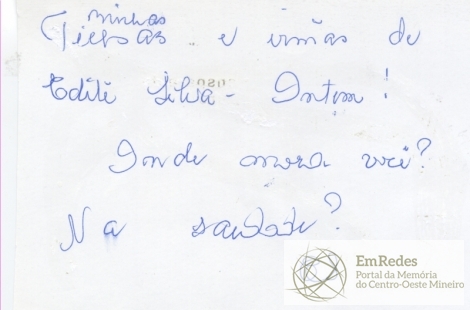 minhas
e irmãs de
Edite Silva - Ontem!
Onde mora você?
Na saudade?
EmRedes
Portal da Memória
do Centro-Oeste Mineiro